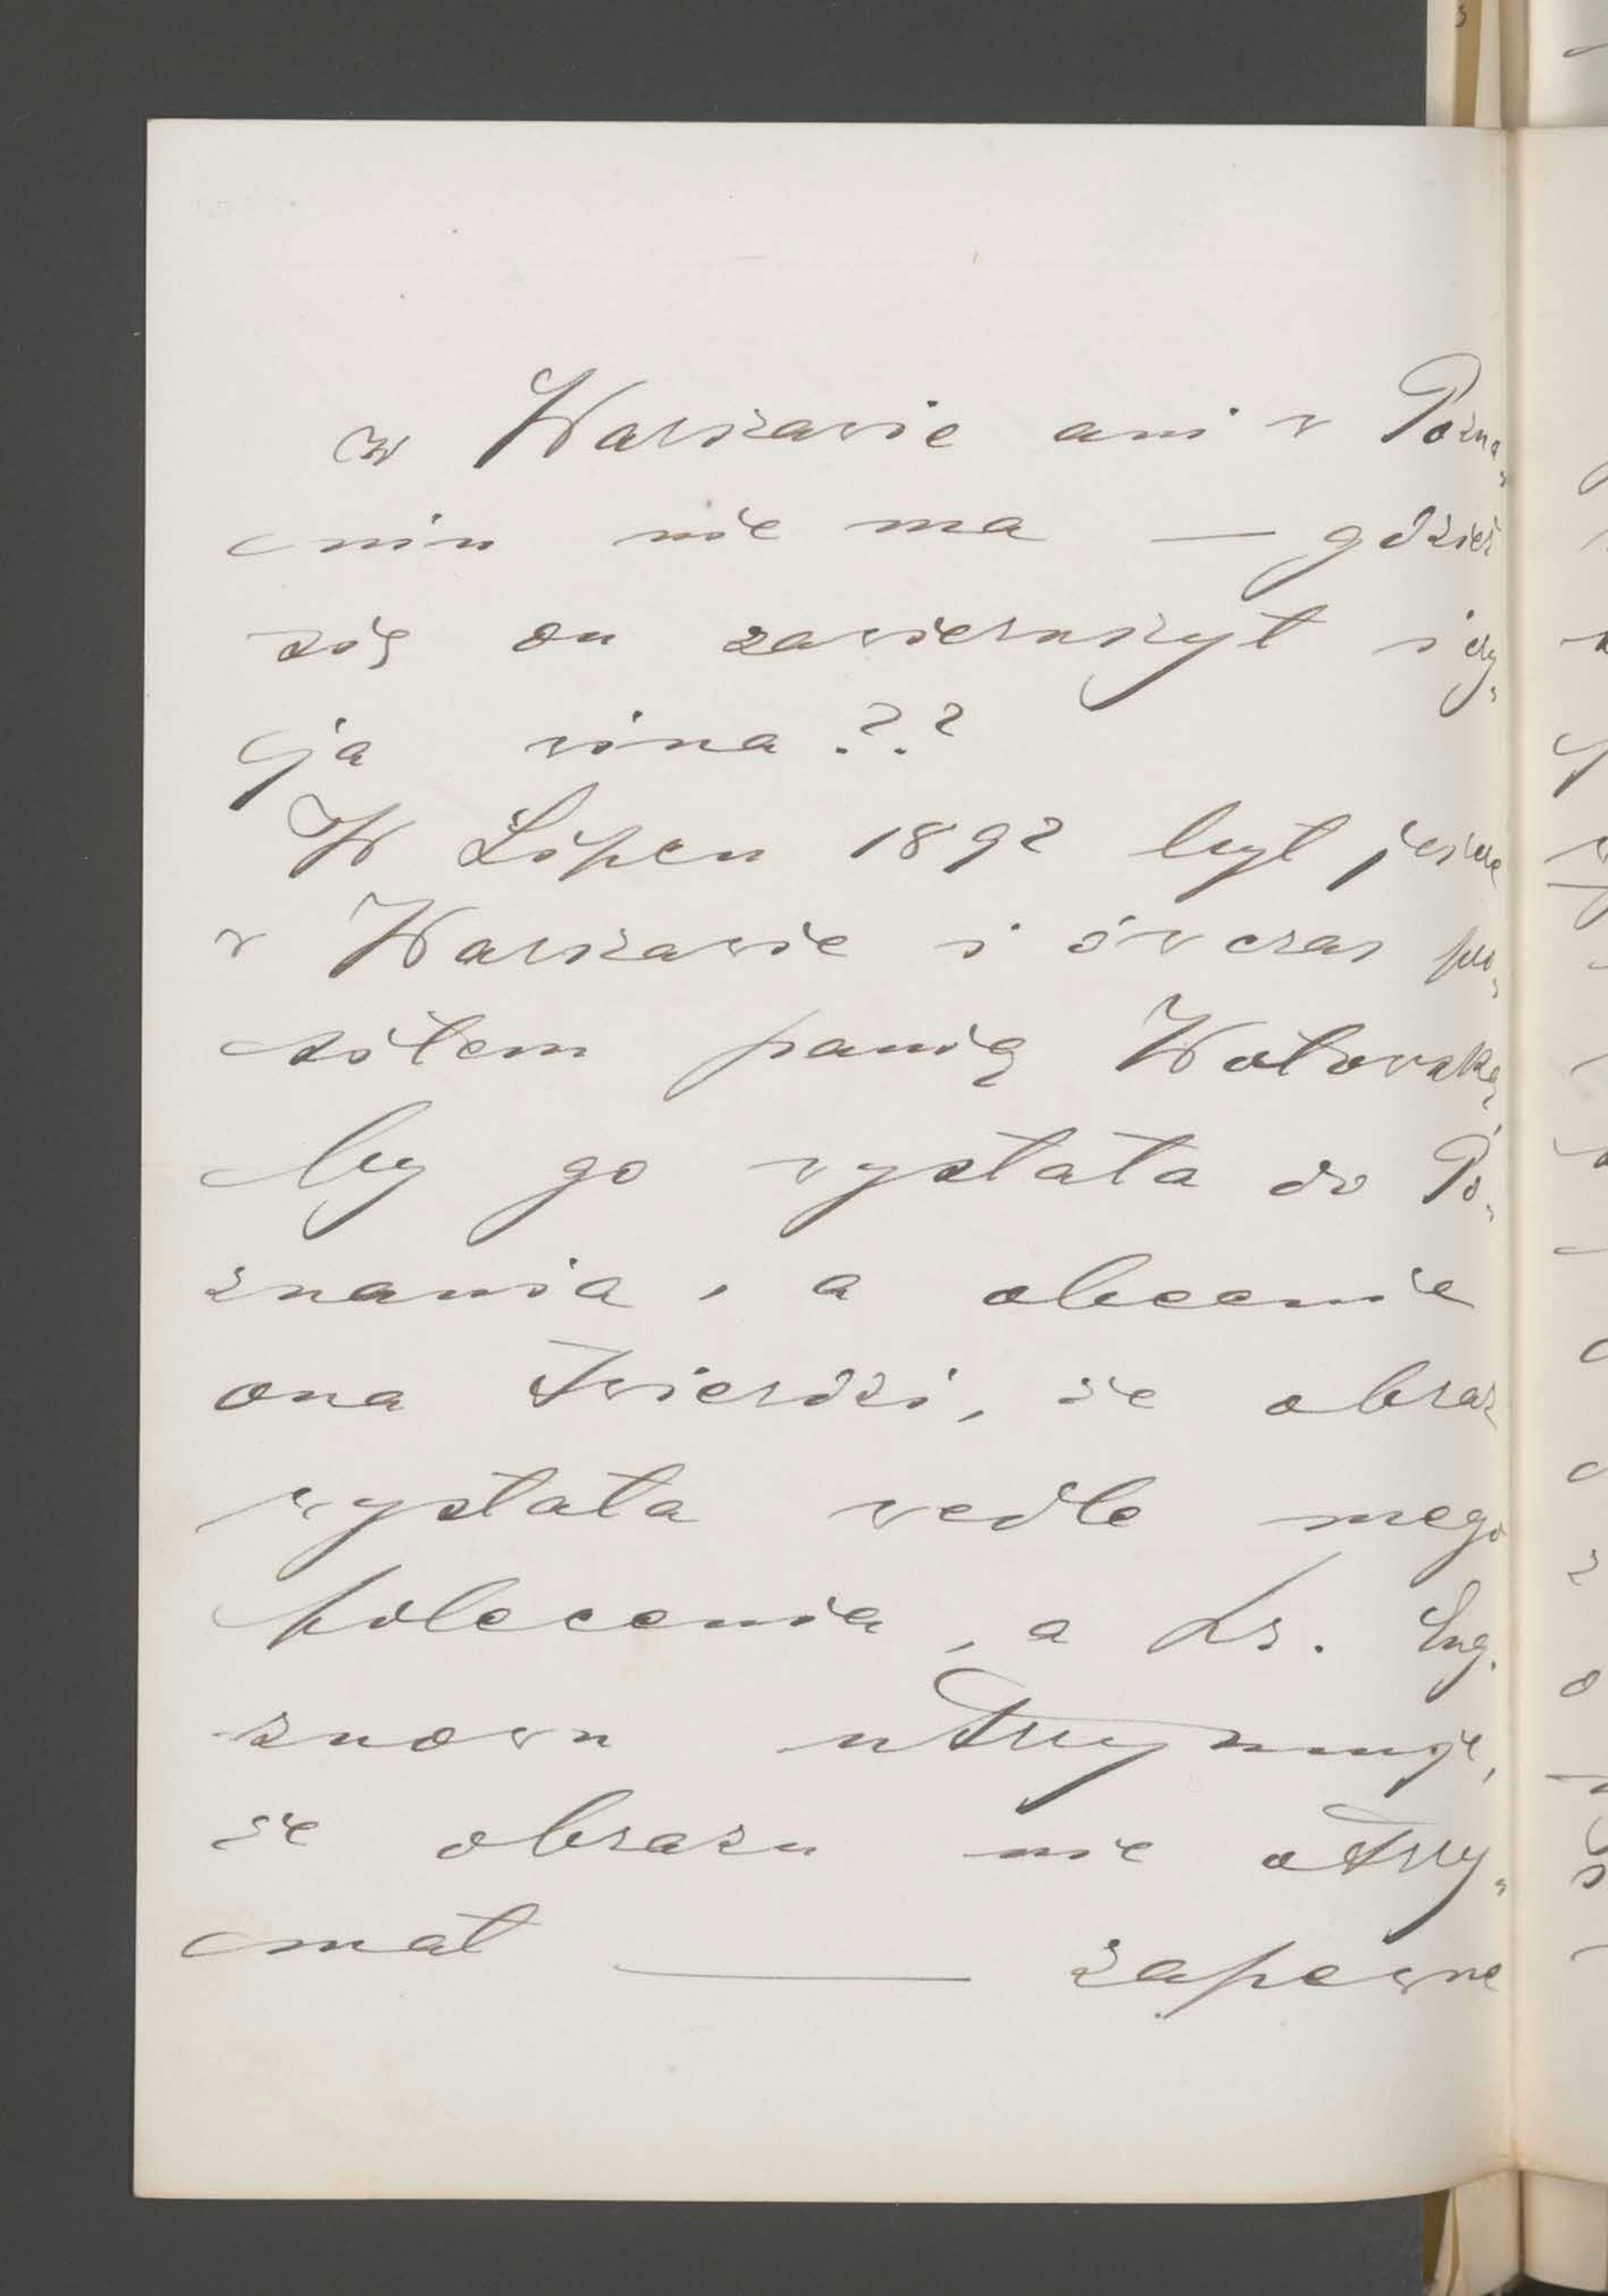 w Warszawie ani w Pozna,
niu nie ma — gdzieś
się on zawieruszył i czy,
ja wina???
W Lipcu 1892 był jeszcze
w Warszawie i ówczas pro,
siłem panią Wołowską,
by go wysłała do Po,
znania, a obecnie
ona twierdzi, że obraz
wysłała wedle mego
polecenia, a Dr. Eng.
znowu utrzymuje,
że obrazu nie otrzy,
mał — zapewne